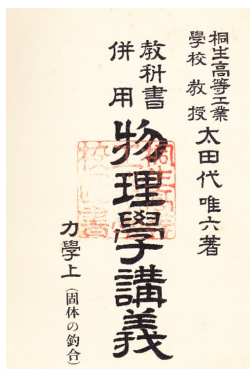 桐生高等工業
學校教授 太田代唯六著
教科書
併用
物理學講義
力學上(固体の釣合)